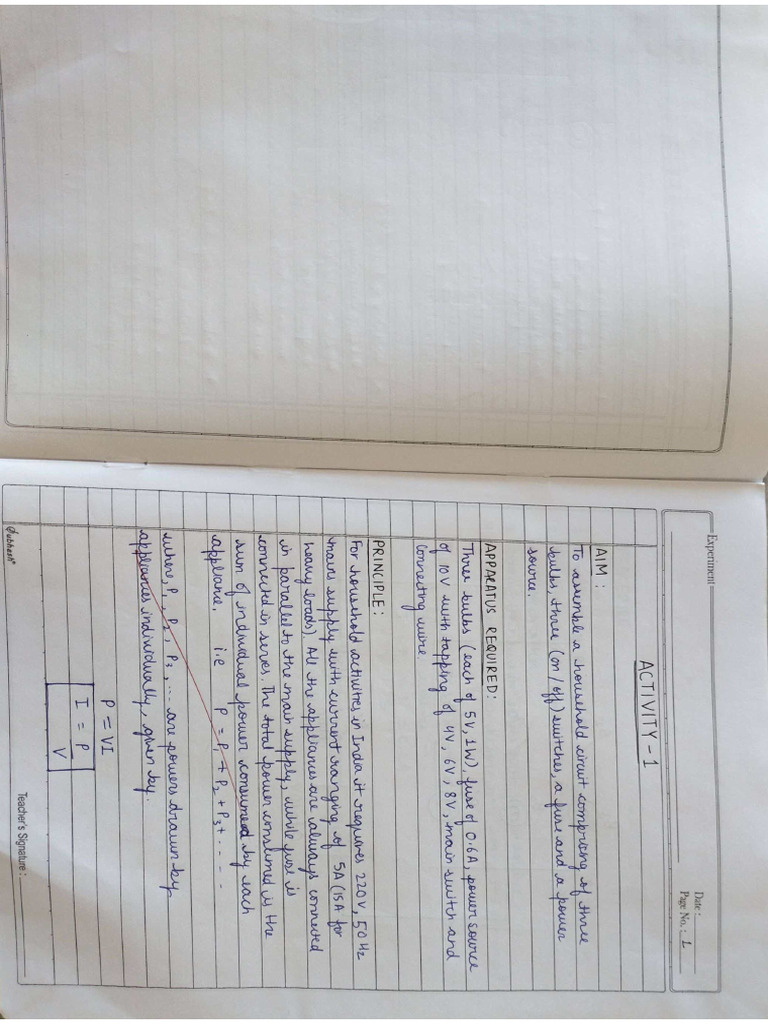 Experiment
Date :
Page No. : 1
ACTIVITY - 1
AIM :
To assemble a household circuit comprising of three
bulbs, three (on/off) switches, a fuse and a power
source.
APPARATUS REQUIRED:
Three bulbs (each of 5V, 1W), fuse of 0.6A, power source
of 10V with tapping of 4V, 6V, 8V, main switch and
connecting wire
PRINCIPLE:
For household activities in India it requires 220V, 50Hz
mains supply with current ranging of 5A (15A for
heavy loads). All the appliances are always connected
in parallel to the main supply, while fuse is
connected in series. The total power consumed is the
sum of individual power consumed by each
appliance. i.e P = P1 + P2 + P3 + ....
where, P1, P2, P3, ... are powers drawn by
appliances individually, given by.
P = VI
I = P/V
Teacher's Signature :